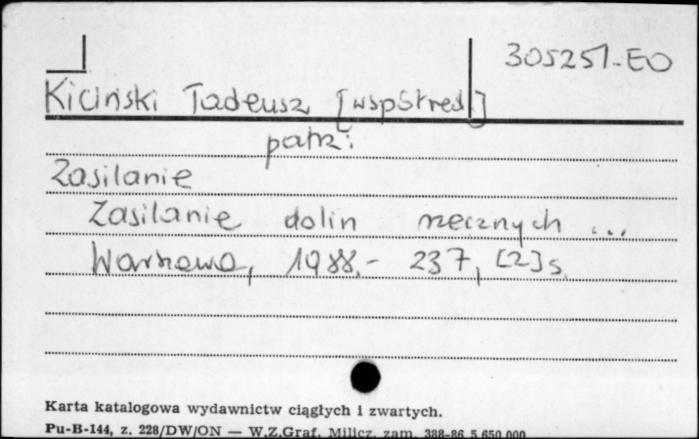 305251-EO
Kiciński Tadeusz [współred.]
patrz:
Zasilanie
Zasilanie dolin rzecznych ...
Warszawa, 1988.- 237, [2] s.
Karta katalogowa wydawnictw ciągłych i zwartych.
Pu-B-144, z. 228/DW/ON — W.Z.Graf. Milicz, zam. 388-86 5 650 000